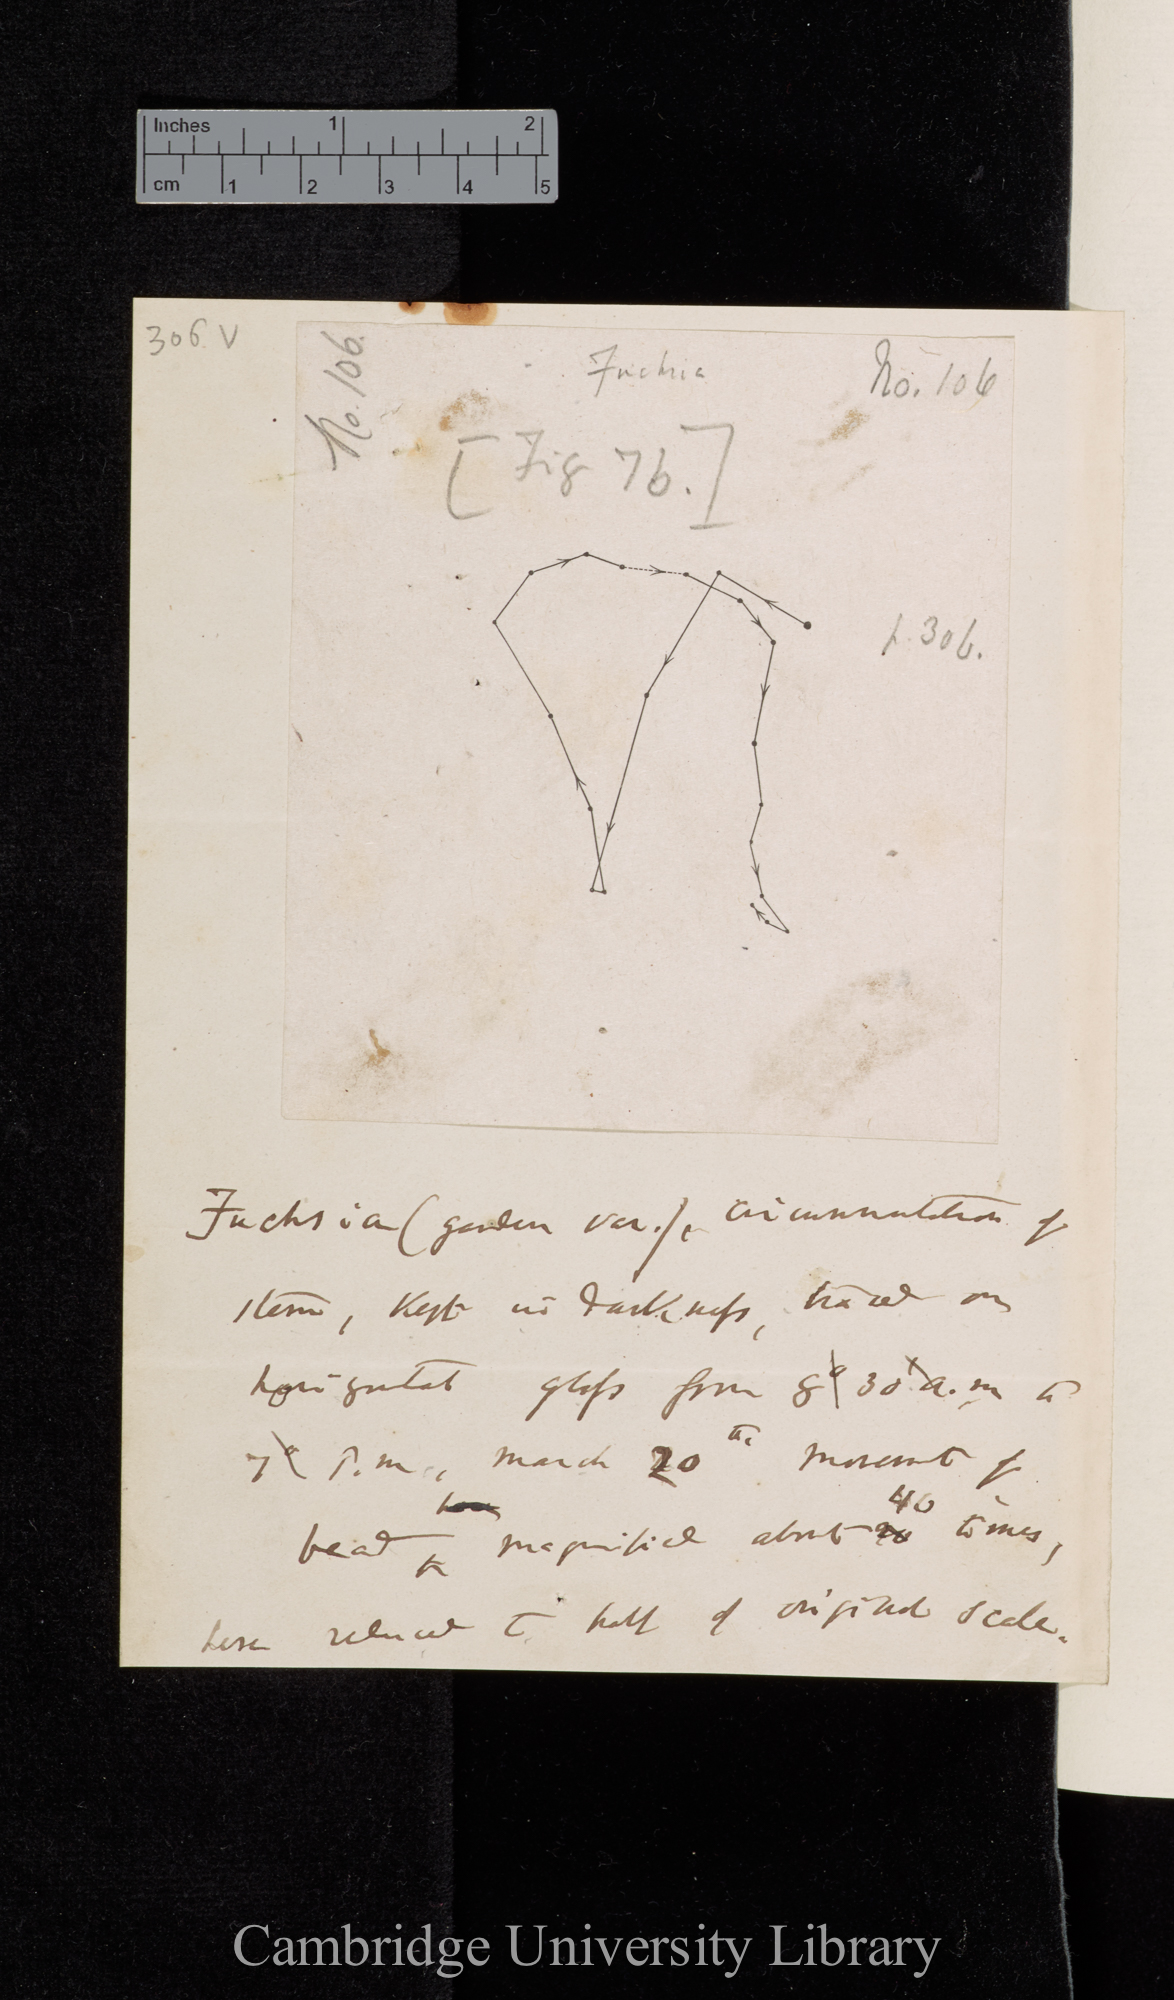 Inches 1 2
cm 1 2 3 4 5
306 v
No. 106.
Fuchsia
No. 106
[Fig 76.]
p. 306.
Fuchsia (garden var.), circumnutation of
stem, kept in darkness, traced on
horizontal glass from 8° 30' a.m to
7° P.m., march 20th movement of
bead magnified about 40 times,
here reduced to half of original scale.
Cambridge University Library